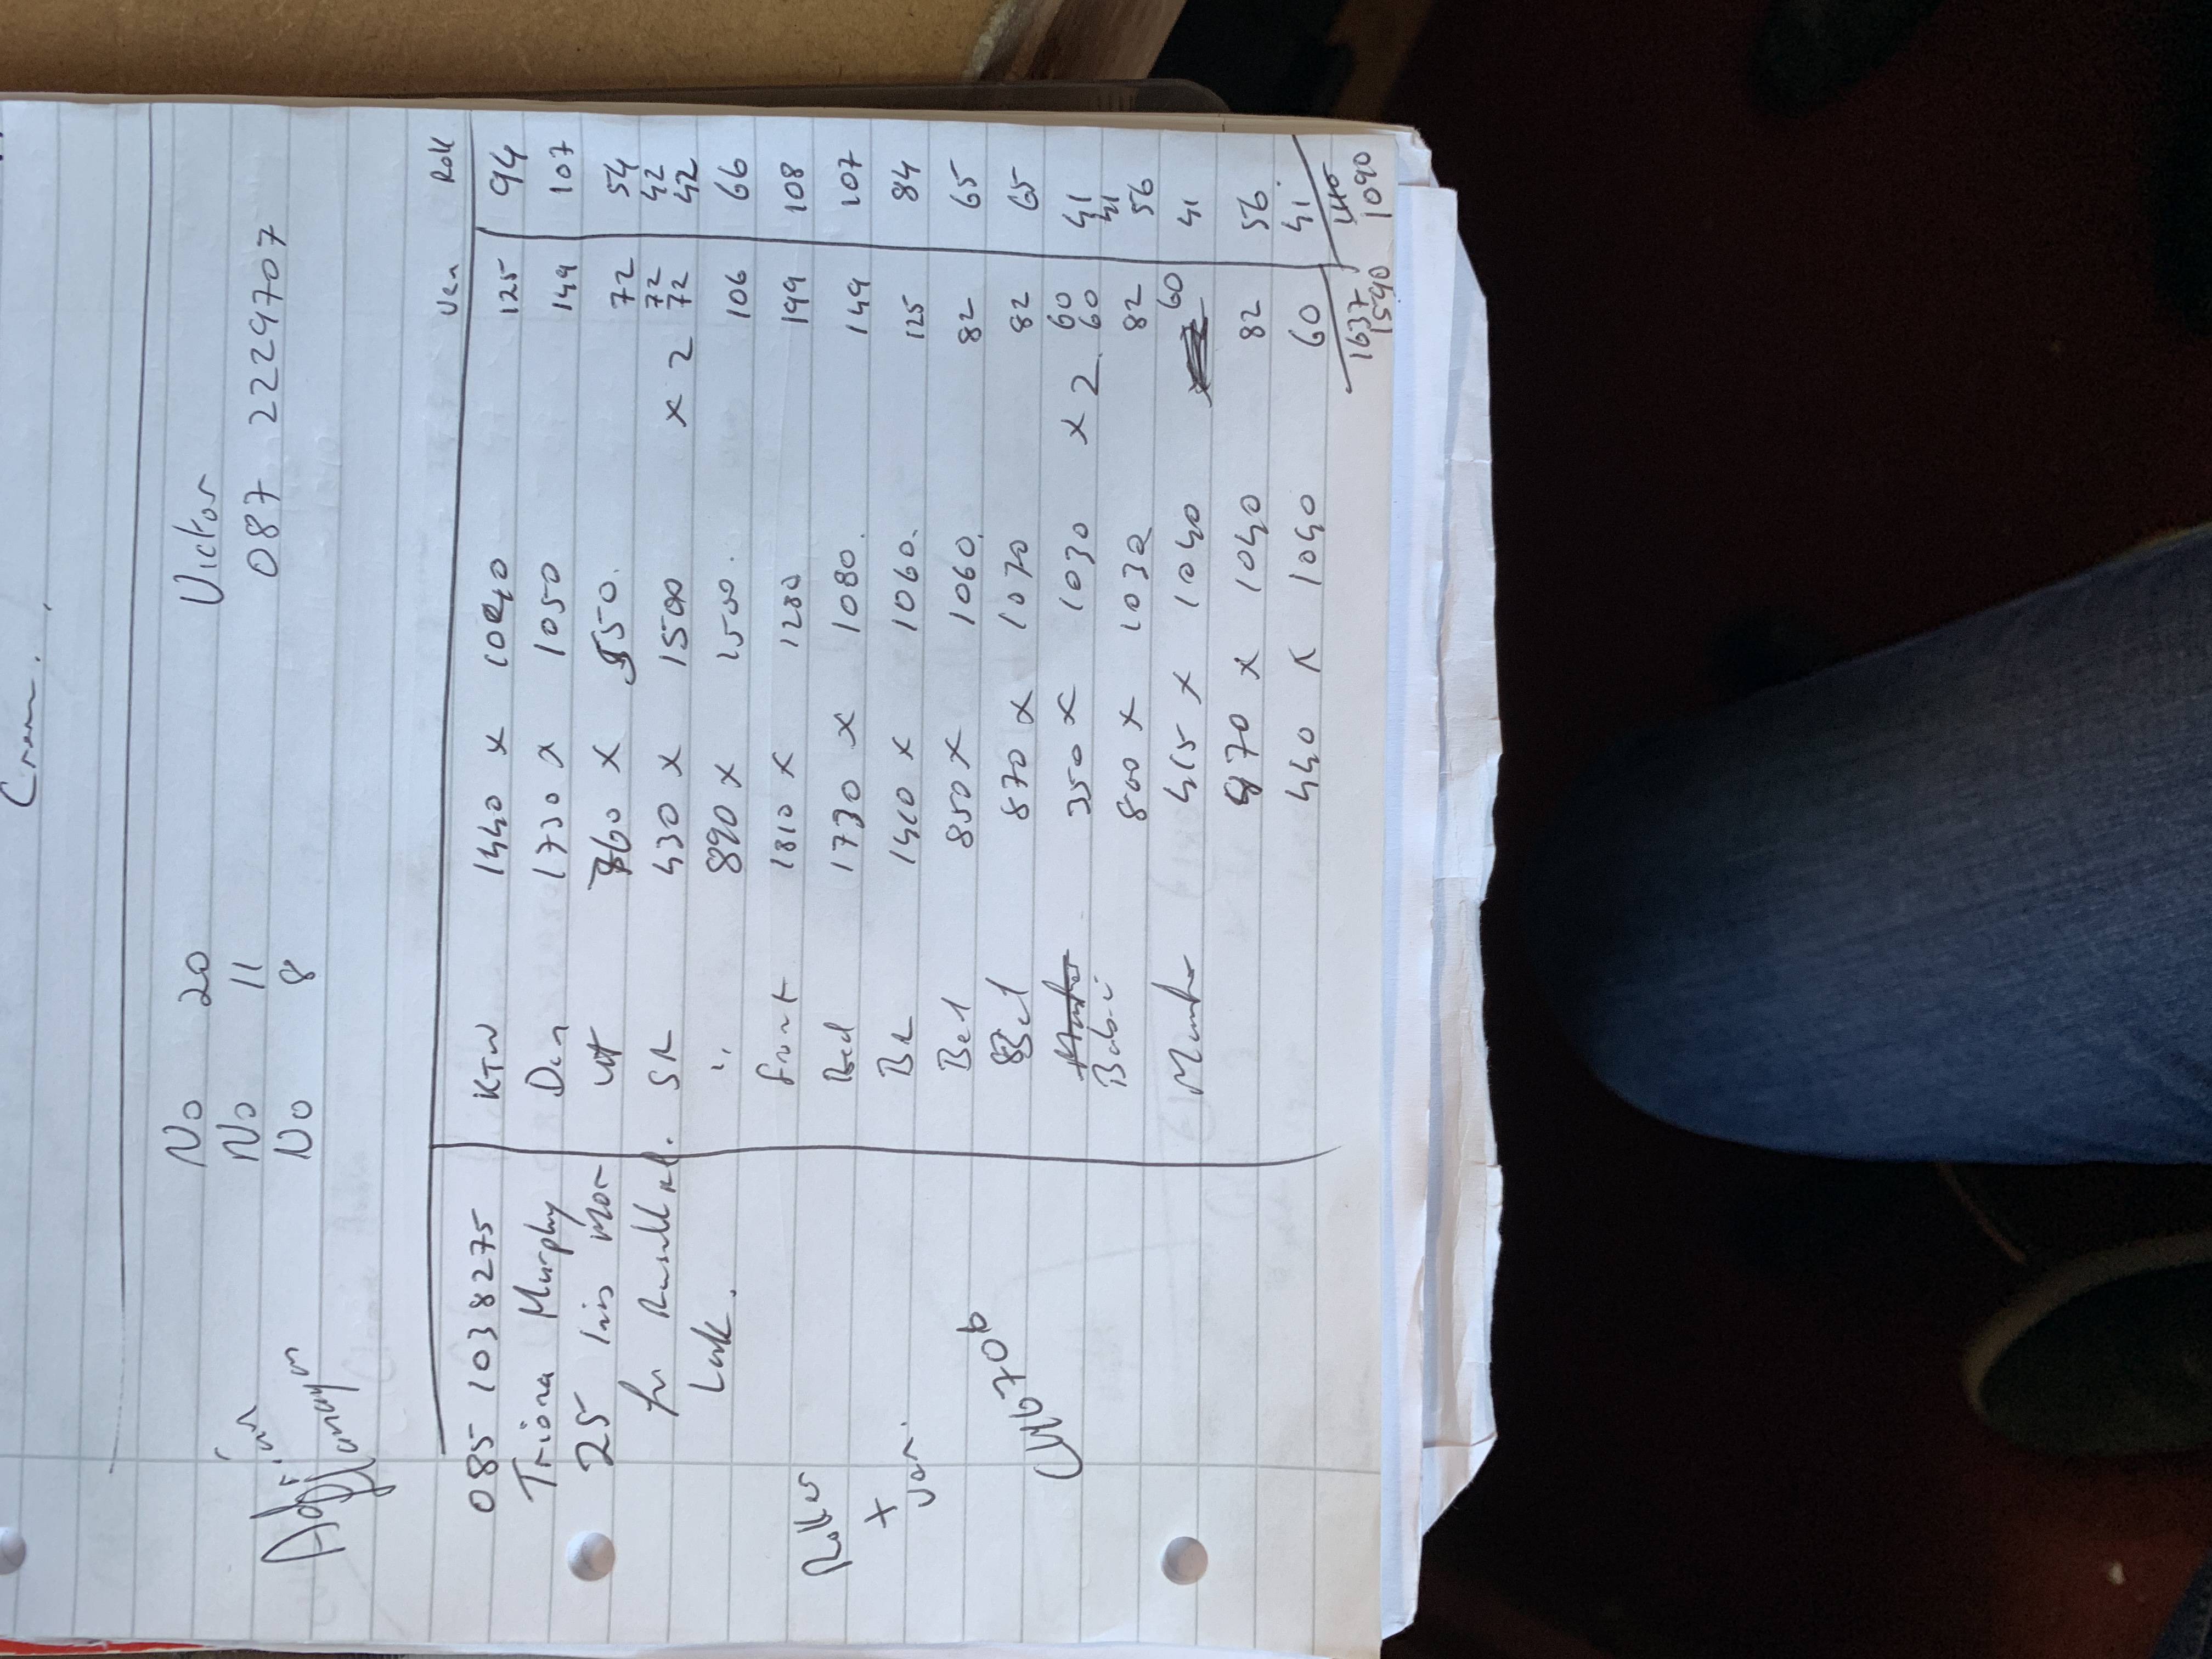 Cream.
No 20 Victor
No 11 087 2229707
No 8
Ven Roll
085 1038275 KTW 1440 x 1040 125 94
Triona Murphy Den 1730 x 1050 149 107
25 Inis Mor 760 x 550. 72 54
72 42
SR 430 x 1500 x 2 72 42
Lark. " 890 x 1500. 106 66
Front 1810 x 1280 199 108
Roller Bed 1730 x 1080. 149 107
+ BR 1410 x 1060. 125 84
Ven. Bed 850 x 1060. 82 65
Bed 870 x 1070 82 65
60 41
350 x 1030 x 2 60 41
800 x 1030 82 56
415 x 1040 60 41
870 x 1040 82 56
440 x 1040 60 41.
1637
1590 1090